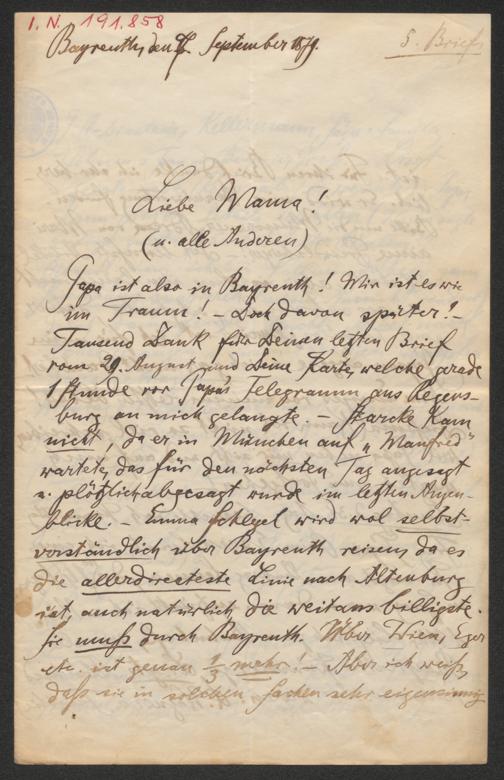 I. N. 191.858
Bayreuth, den 7. September 1879.
5. Brief
Liebe Mama!
(u. alle Anderen)
Papa ist also in Bayreuth! Mir ist es wie
im Traum! – Doch davon später! –
Tausend Dank für Deinen letzten Brief
vom 29. August und Deine Karte, welche gerade
1 Stunde vor Papa's Telegramm aus Regens-
burg an mich gelangte. – Starcke kam
nicht, da er in München auf „Manfred"
wartete, das für den nächsten Tag angesagt
u. plötzlich abgesagt wurde im letzten Augen-
blicke. – Emma Schlegel wird wol selbst-
verständlich über Bayreuth reisen, da es
die allerdirecteste Linie nach Altenburg
ist, auch natürlich die weitaus billigste.
Sie muß durch Bayreuth. Über Wien, Eger
etc. ist genau 1/3 mehr! – Aber ich weiß,
daß sie in solchen Sachen sehr eigensinnig